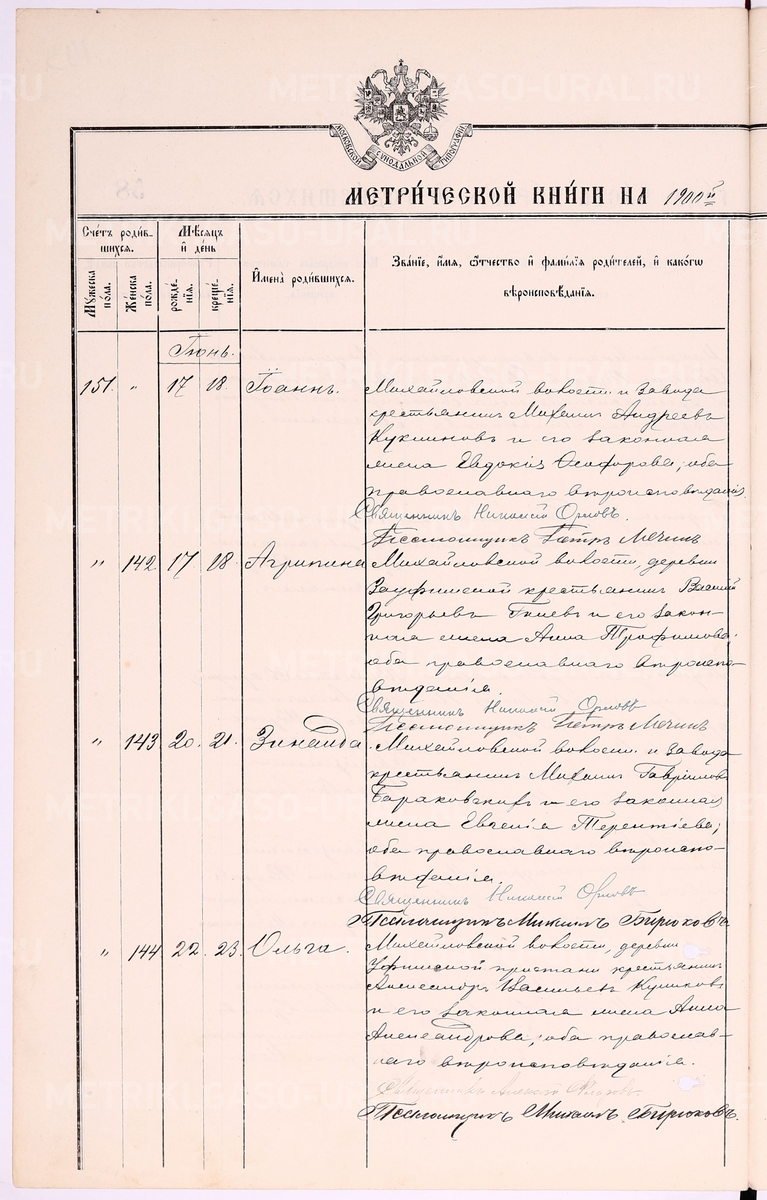 МОСКОВСКОЙ СѴНОДАЛЬНОЙ ТИПОГРАФІИ
МЕТРИ́ЧЕСКОЙ КНИ́ГИ НА 1900 й
Сче́тъ роди́в-
шихся.
Мꙋ́жеска по́ла.
Же́нска по́ла.
Мѣ́сяцъ
и҆ де́нь
рожде́-
нія.
креще́-
нія.
И҆мена̀ роди́вшихся.
Зва́ніе, и҆́мя, ѻ҆́тчество и҆ фами́лія роди́телей, и҆ како́гѡ
вѣроисповѣ́данія.
Іюнь.
151. " 17 18. Іоаннъ. Михайловской волости и завода
крестьянинъ Михаилъ Андреевъ
и его законная
жена Евдокія Ѳеофорова, оба
православнаго вѣроисповѣданія.
Священникъ Николай Орловъ.
Псаломщикъ Петръ Мечинъ
" 142. 17 18 Агрипина Михайловской волости, деревни
Зауфимской крестьянинъ Василій
Григорьевъ и его закон-
ная жена Анна Трофимова,
оба православнаго вѣроиспо-
вѣданія.
Священникъ Николай Орловъ
Псаломщикъ Петръ Мечинъ
" 143. 20. 21. Зинаида. Михайловской волости и завода
крестьянинъ Михаилъ Гавріиловъ
и его законная
жена Евгенія Терентіева,
оба православнаго вѣроиспо-
вѣданія.
Священникъ Николай Орловъ
Псаломщикъ Михаилъ Бирюковъ.
" 144. 22. 23. Ольга. Михайловской волости, деревни
Уфимской пристани крестьянинъ
Александръ Васильевъ Куликовъ
и его законная жена Анна
Александрова, оба православ-
наго вѣроисповѣданія.
Священникъ Алексѣй
Псаломщикъ Михаилъ Бирюковъ.
METRIKI.GASO-URAL.RU